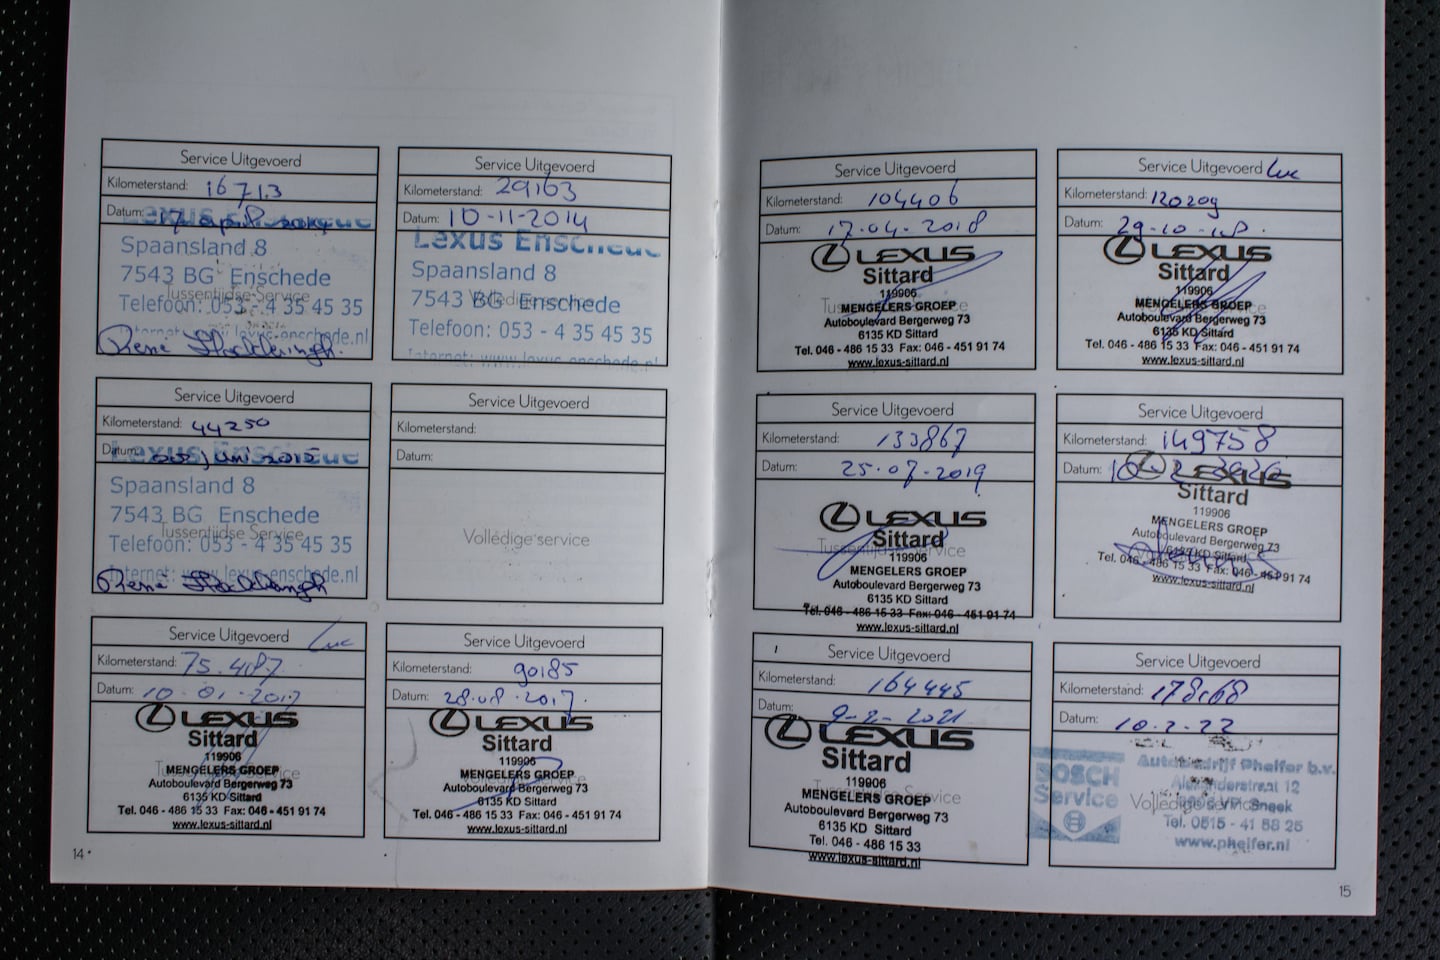 Service Uitgevoerd
Kilometerstand: 16713
Datum: 17 april 2014
Lexus Enschede
Spaansland 8
7543 BG Enschede
Tussentijdse Service
Telefoon: 053 - 4 35 45 35
Internet: www.lexus-enschede.nl
René
Service Uitgevoerd
Kilometerstand: 29163
Datum: 10-11-2014
Lexus Enschede
Spaansland 8
7543 BG Enschede
Volledige service
Telefoon: 053 - 4 35 45 35
Internet: www.lexus-enschede.nl
Service Uitgevoerd
Kilometerstand: 44250
Datum: juni 2015
Lexus Enschede
Spaansland 8
7543 BG Enschede
Tussentijdse Service
Telefoon: 053 - 4 35 45 35
Internet: www.lexus-enschede.nl
René
Service Uitgevoerd
Kilometerstand:
Datum:
Volledige service
Service Uitgevoerd Luc
Kilometerstand: 75.487
Datum: 10-01-2017
LEXUS
Sittard
119906
MENGELERS GROEP
Autoboulevard Bergerweg 73
6135 KD Sittard
Tel. 046 - 486 15 33 Fax: 046 - 451 91 74
www.lexus-sittard.nl
Service Uitgevoerd
Kilometerstand: 90185
Datum: 28.08.2017.
LEXUS
Sittard
119906
MENGELERS GROEP
Autoboulevard Bergerweg 73
6135 KD Sittard
Tel. 046 - 486 15 33 Fax: 046 - 451 91 74
www.lexus-sittard.nl
14
Service Uitgevoerd
Kilometerstand: 104406
Datum: 17.04.2018
LEXUS
Sittard
119906
MENGELERS GROEP
Autoboulevard Bergerweg 73
6135 KD Sittard
Tel. 046 - 486 15 33 Fax: 046 - 451 91 74
www.lexus-sittard.nl
Service Uitgevoerd Luc
Kilometerstand: 120209
Datum: 29-10-18.
LEXUS
Sittard
119906
MENGELERS GROEP
Autoboulevard Bergerweg 73
6135 KD Sittard
Tel. 046 - 486 15 33 Fax: 046 - 451 91 74
www.lexus-sittard.nl
Service Uitgevoerd
Kilometerstand: 133867
Datum: 25.07.2019
LEXUS
Sittard
Tussentijdse Service
119906
MENGELERS GROEP
Autoboulevard Bergerweg 73
6135 KD Sittard
Tel. 046 - 486 15 33 Fax: 046 - 451 91 74
www.lexus-sittard.nl
Service Uitgevoerd
Kilometerstand: 149758
Datum: 10-2-2020
LEXUS
Sittard
119906
MENGELERS GROEP
Autoboulevard Bergerweg 73
6135 KD Sittard
Tel. 046 - 486 15 33 Fax: 046 - 451 91 74
www.lexus-sittard.nl
Service Uitgevoerd
Kilometerstand: 164445
Datum: 9-2-2021
LEXUS
Sittard
119906
MENGELERS GROEP
Tussentijdse Service
Autoboulevard Bergerweg 73
6135 KD Sittard
Tel. 046 - 486 15 33
www.lexus-sittard.nl
Service Uitgevoerd
Kilometerstand: 178168
Datum: 10-2-22
BOSCH
Service
Autobedrijf Pheifer b.v.
12
Volledige service
Sneek
Tel. 0515 - 41 58 25
www.pheifer.nl
15